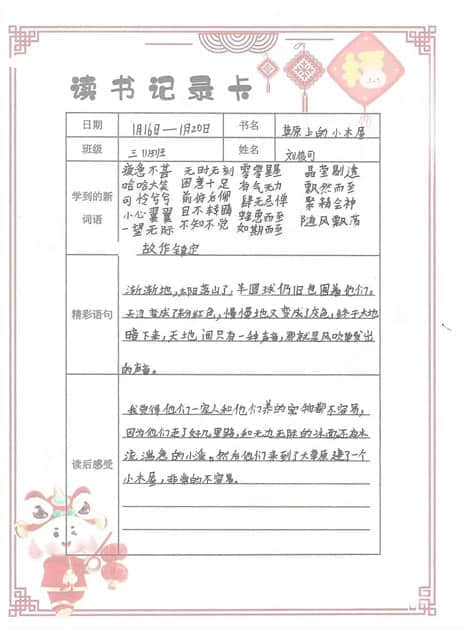 福
读书记录卡
日期 1月16日—1月20日 书名 草原上的小木屋
班级 三 班 姓名
学到的新词语
疲惫不甚 无时无刻 零零星星 晶莹剔透
哈哈大笑 困意十足 有气无力 飘然而至
可怜兮兮 前俯后仰 肆无忌惮 聚精会神
小心翼翼 目不转睛 随风飘荡
一望无际 不知不觉 如期而至
故作镇定
精彩语句
渐渐地,太阳落山了,半圆球仍旧包围着他们。
天边变成了粉红色,慢慢地又变成了灰色,终于大地
暗下来,天地间只有一种声音,那就是风吹草发出
的声音。
读后感受
我觉得他们一家人和他们养的宠物都不容易,
因为他们走了好几里路,和无边无际的冰面还有水
流湍急的小溪。然后他们来到了大草原建了一个
小木屋,非常的不容易。